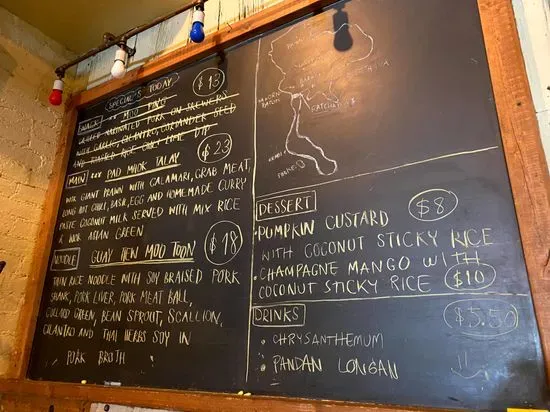 SPECIAL'S TODAY
$13
SNACK MOO PING
GRILLED MARINATED PORK ON SKEWERS
WITH GARLIC, CILANTRO, CORIANDER SEED
AND TOASTED RICE CHILI LIME DIP
$23
MAIN PAD MHOK TALAY
WOK GIANT PRAWN WITH CALAMARI, CRAB MEAT,
LONG HOT CHILI, BASIL, EGG AND HOMEMADE CURRY
PASTE COCONUT MILK SERVED WITH MIX RICE
& WOK ASIAN GREEN
$18
NOODLE GUAY TIEW MOO TOON
THIN RICE NOODLE WITH SOY BRAISED PORK
SHANK, PORK LIVER, PORK MEAT BALL,
COLLARD GREEN, BEAN SPROUT, SCALLION,
CILANTRO AND THAI HERBS SOY IN
PORK BROTH
DESSERT
$8
• PUMPKIN CUSTARD
WITH COCONUT STICKY RICE
• CHAMPAGNE MANGO WITH
COCONUT STICKY RICE $10
DRINKS
$5.50
• CHRYSANTHEMUM
• PANDAN LONGAN